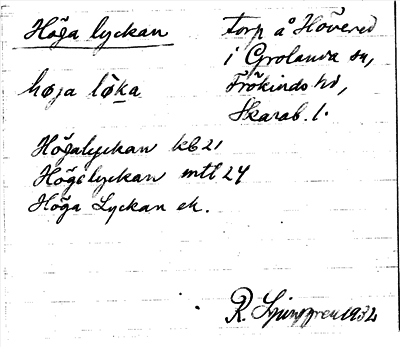 Höga lyckan
torp å Hövered
i Grolanda sn,
Frökinds hd,
Skarab. l.
høja lò̀ka
Högalyckan kb 21
Högslyckan mtl 24
Höga Lyckan ek.
R. Ljunggren 1932